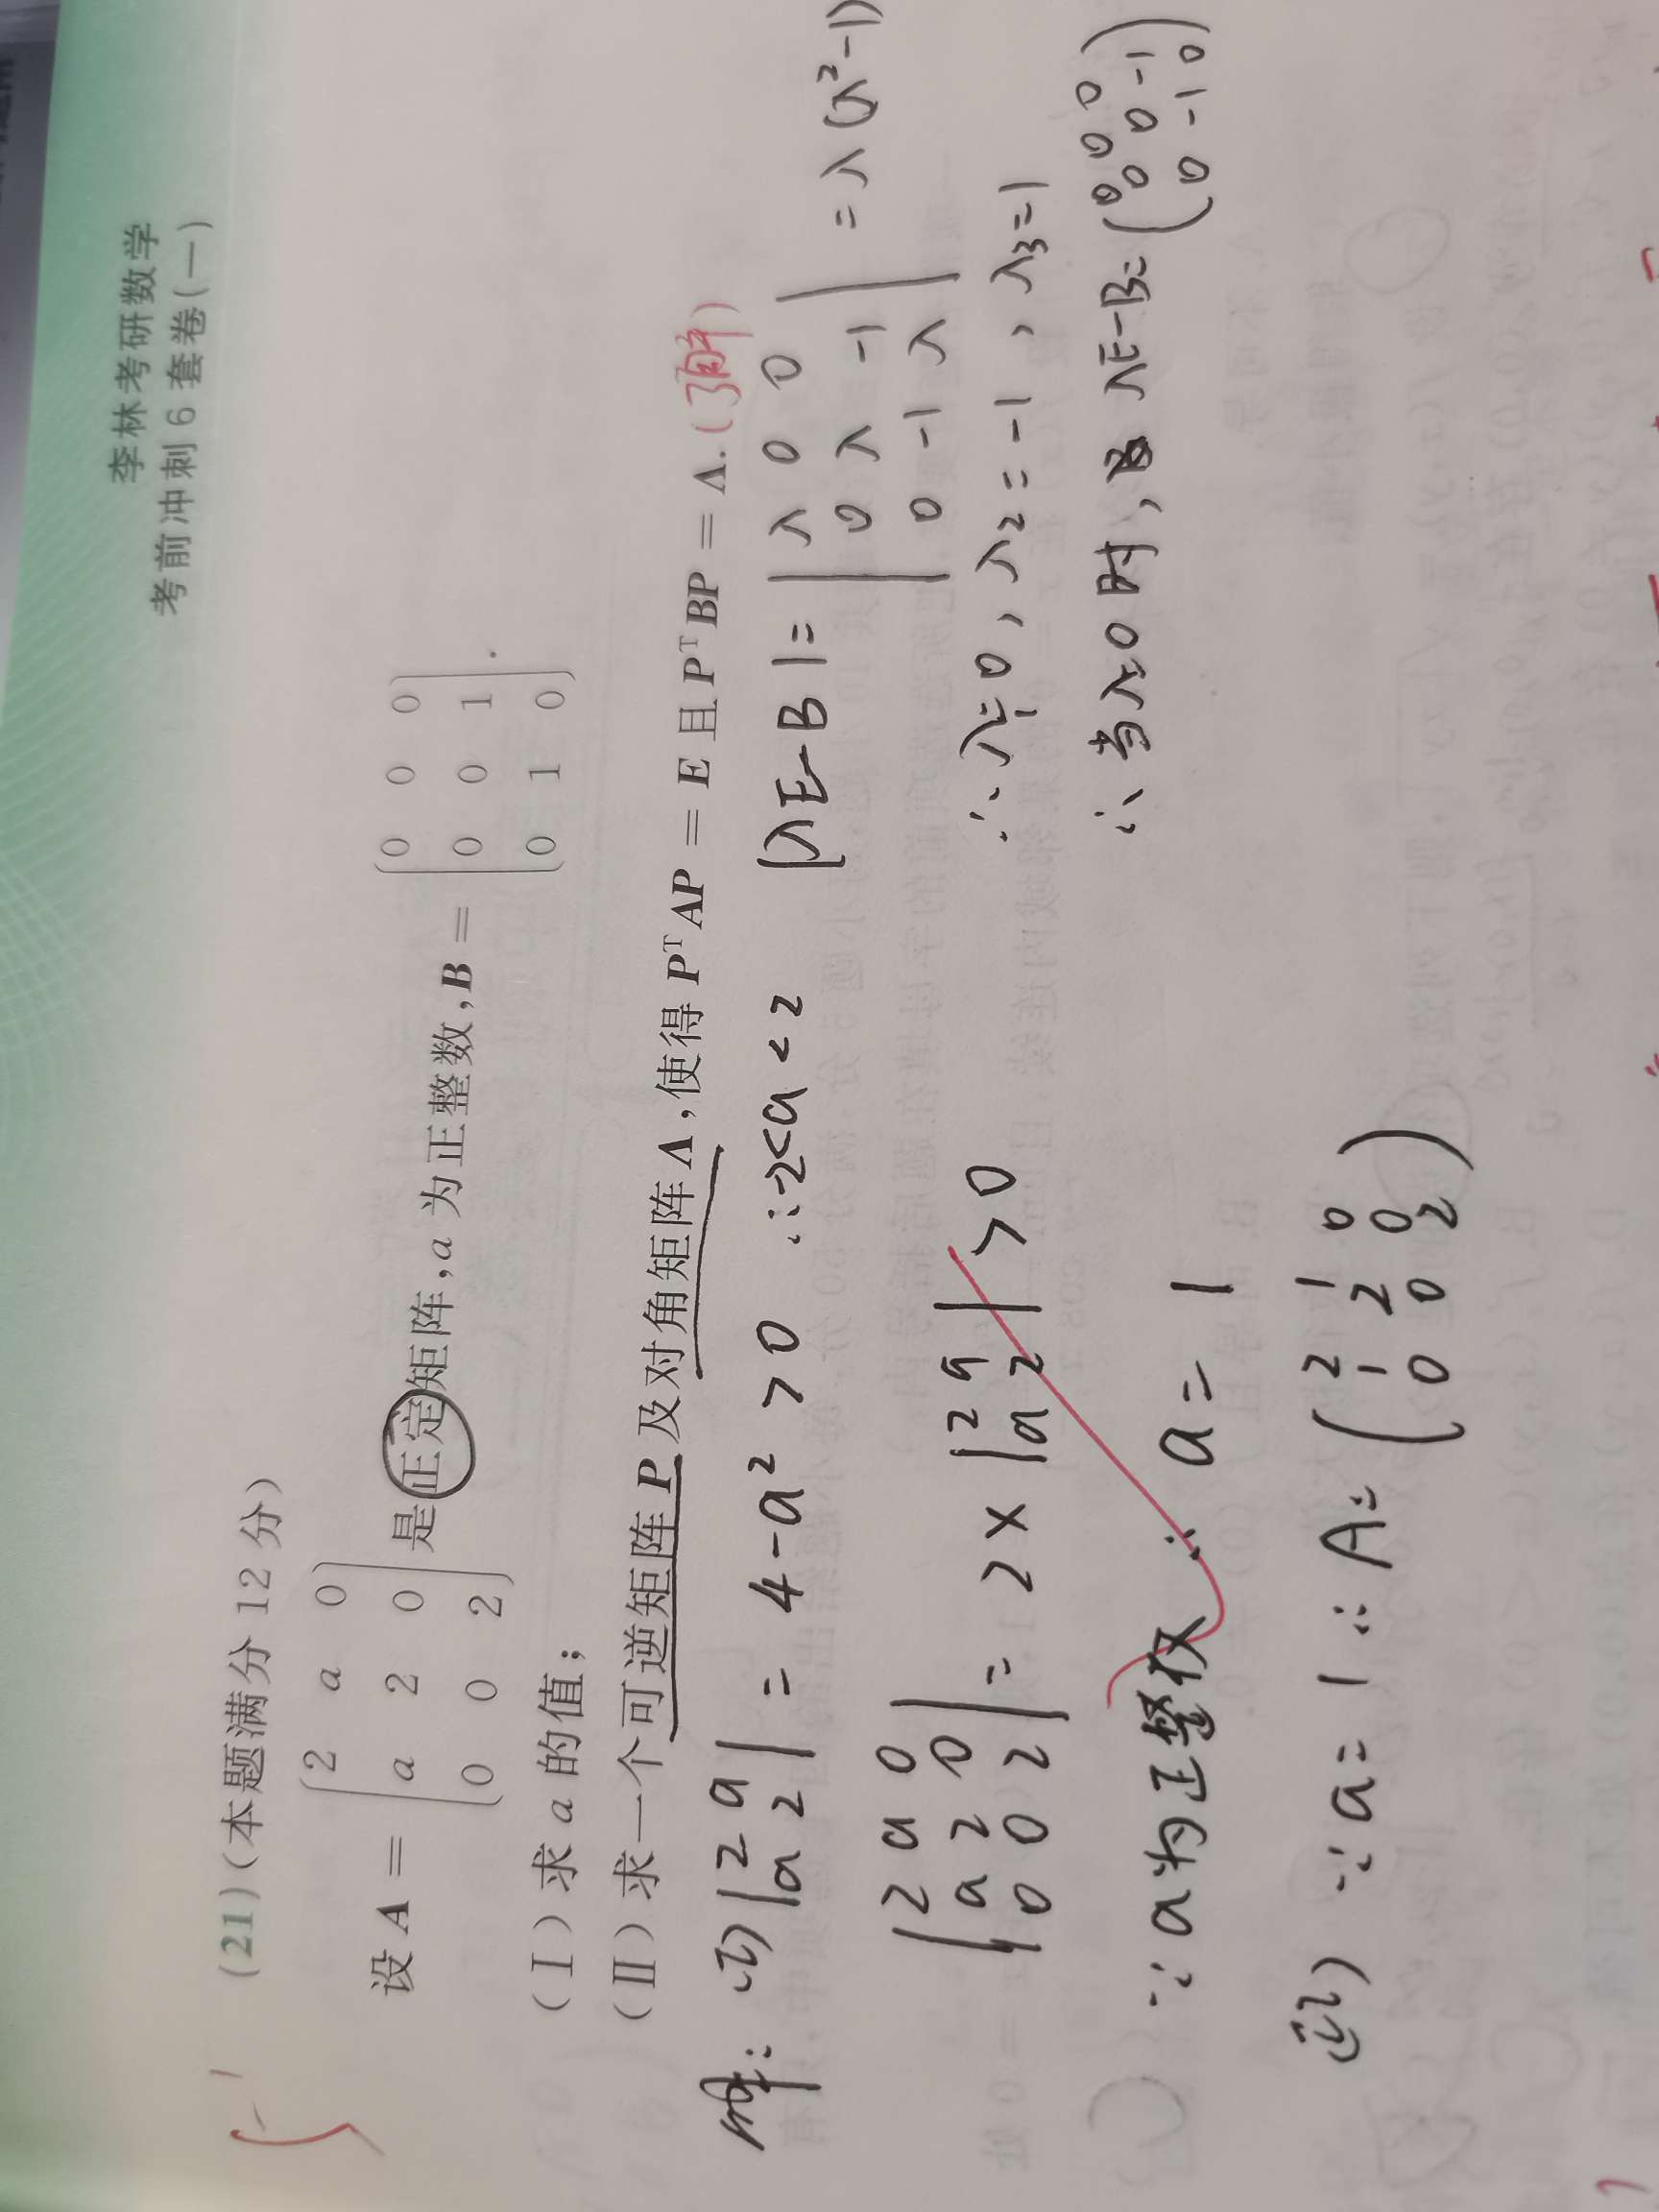 李林考研数学
考前冲刺6套卷(一)
(21)(本题满分12分)
设A=
2 a 0
a 2 0
0 0 2
是正定矩阵,a为正整数,B=
0 0 0
0 0 1
0 1 0
.
(Ⅰ)求a的值;
(Ⅱ)求一个可逆矩阵P及对角矩阵Λ,使得PᵀAP=E且PᵀBP=Λ.(了解)
解: (1) |2 a
a 2| = 4-a² > 0 ∴-2<a<2
|2 a 0
a 2 0
0 0 2| = 2× |2 a
a 2| > 0
∵a为正整数 ∴ a = 1
(2) ∵a=1 ∴A= (2 1 0
1 2 0
0 0 2)
|λE-B|= |λ 0 0
0 λ -1
0 -1 λ| =λ(λ²-1)
∴λ₁=0, λ₂=-1, λ₃=1
∴当λ=0时, λE-B= (0 0 0
0 0 -1
0 -1 0)